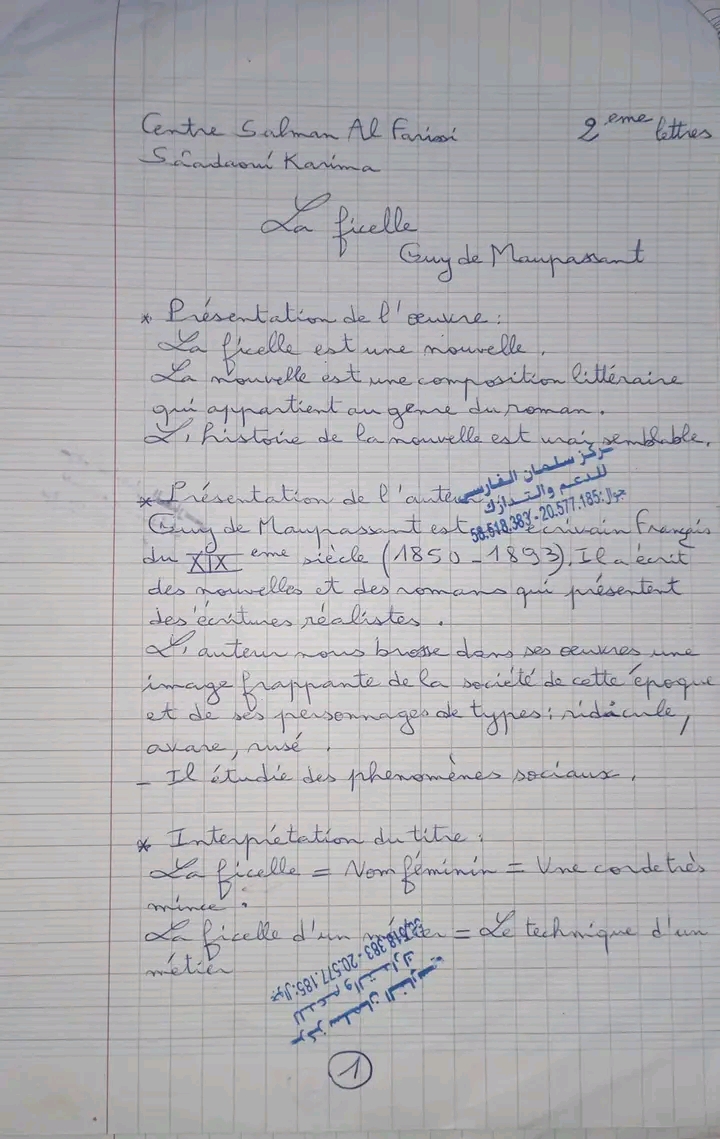 Centre Salman Al Farissi 2 eme lettres
Sâadaoui Karima
La ficelle
Guy de Maupassant
* Présentation de l'œuvre :
La ficelle est une nouvelle.
La nouvelle est une composition littéraire
qui appartient au genre du roman.
L'histoire de la nouvelle est vrai semblable.
مركز سلمان الفارسي
للدعم والتدارك
جوال: 20.577.185 - 58.518.383
* Présentation de l'auteur
Guy de Maupassant est écrivain Français
du XIX eme siècle (1850 - 1893). Il a écrit
des nouvelles et des romans qui présentent
des écritures réalistes.
L'auteur nous brosse dans ses œuvres une
image frappante de la société de cette époque
et de ses personnages de types : ridicule,
avare, rusé.
- Il étudie des phenomènes sociaux.
* Interprétation du titre :
La ficelle = Nom féminin = Une corde très
mince.
La ficelle d'un métier = Le technique d'un
métier
مركز سلمان الفارسي
للدعم والتدارك
جوال: 20.577.185 - 58.518.383
1